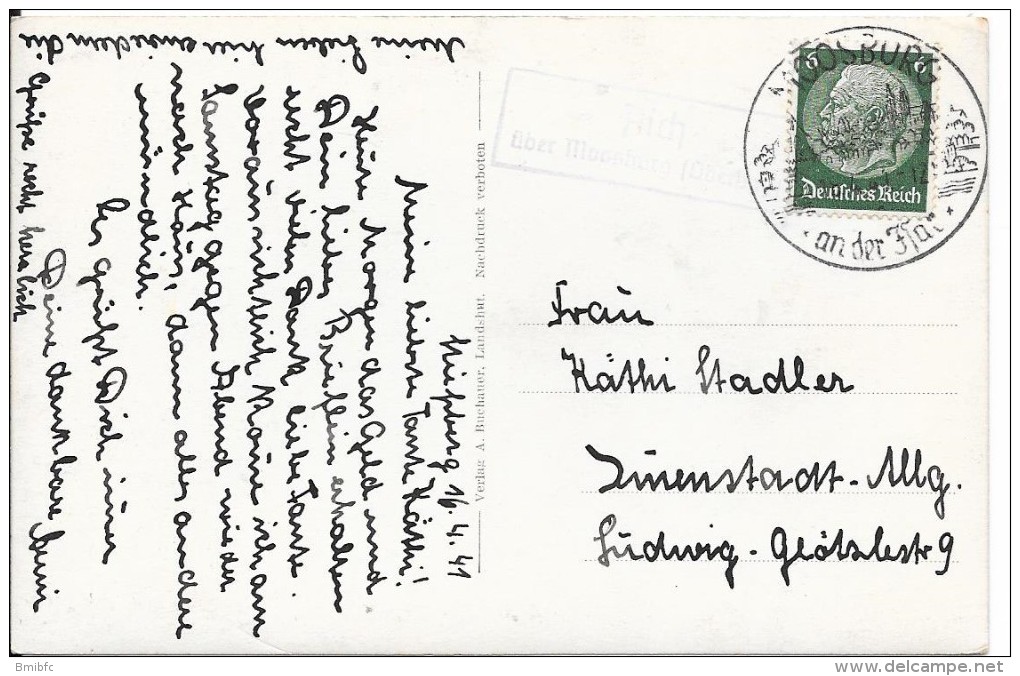 Moosburg 16.4.41
Meine liebste Tante Käthi!
Heute Morgen das Geld und
Dein liebes Brieflein erhalten
recht vielen Dank liebe Tante.
Voraussichtlich komme ich am
Samstag gegen Abend wieder
nach Haus, dann alles andere
mündlich.
Es grüßt Dich immer
Deine dankbare
Meine Lieben hier die
Grüße recht herzlich
Verlag A. Buchauer, Landshut. Nachdruck verboten
über Moosburg
MOOSBURG
an der Isar
6 6
Deutsches Reich
Frau
Käthi Stadler
Immenstadt-Allg.
Ludwig-Glötzlestr 9
Bmibfc
delcampe.net